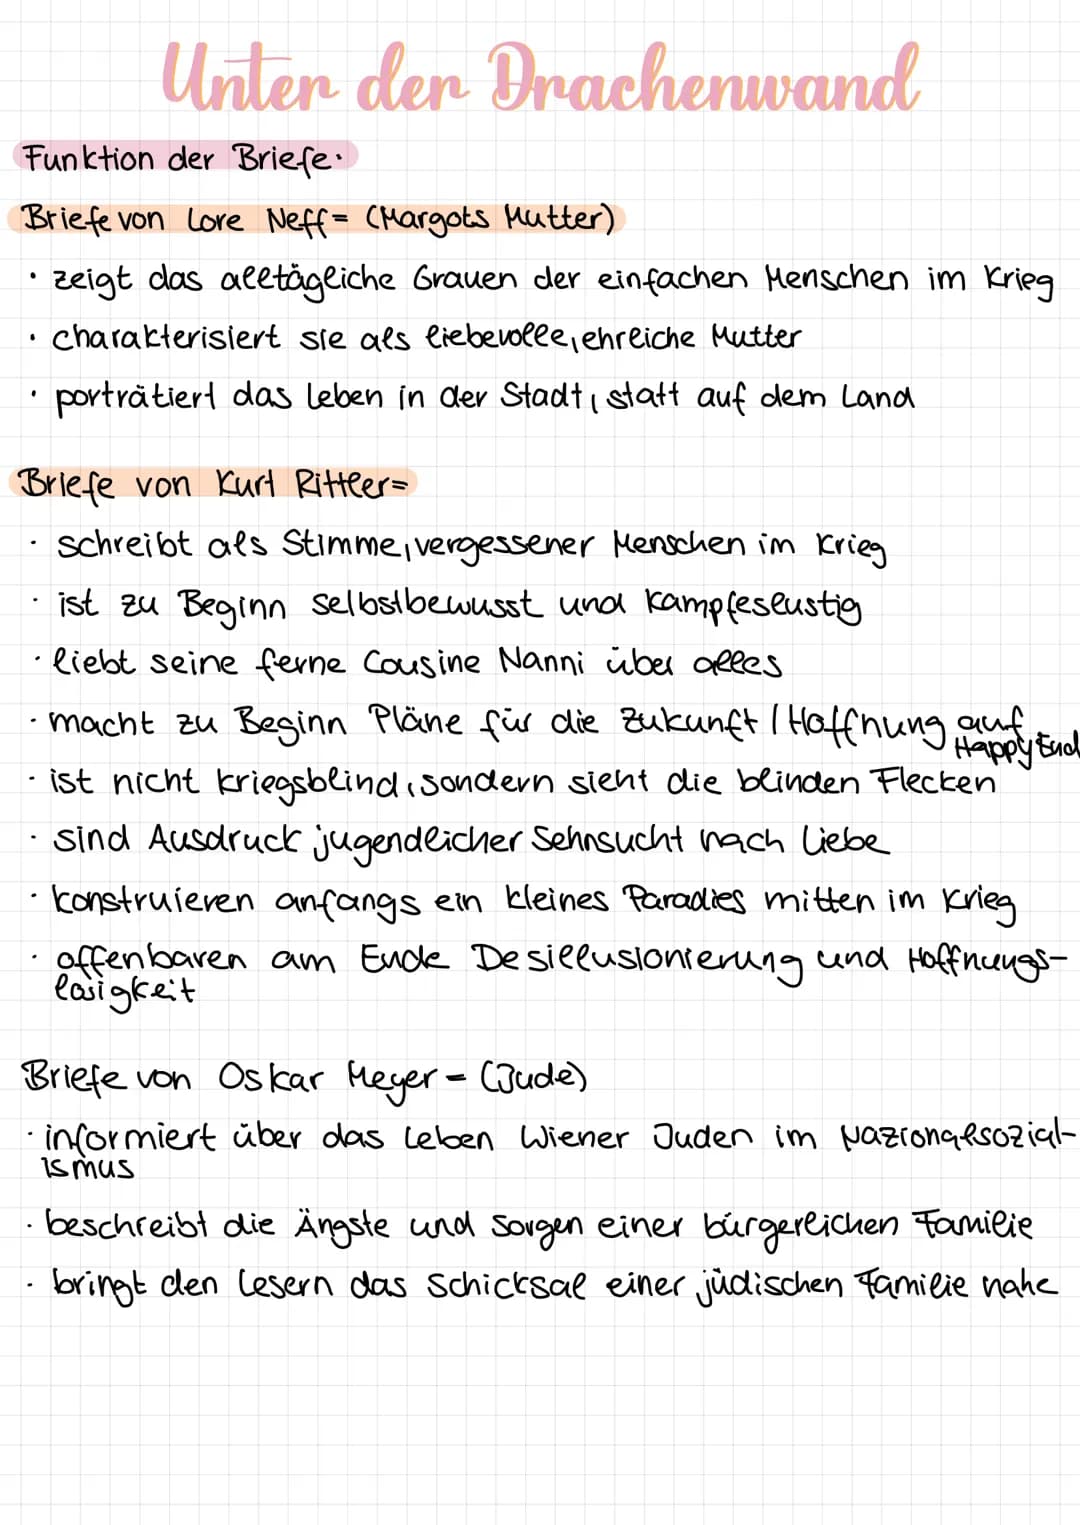 Unter der Drachenwand
Funktion der Briefe:
Briefe von Lore Neff= (Margots Mutter)
· zeigt das alltägliche Grauen der einfachen Menschen im Krieg
· charakterisiert sie als liebevolle, ehreiche Mutter
· porträtiert das Leben in der Stadt, statt auf dem Land
Briefe von Kurt Rittler=
· schreibt als Stimme, vergessener Menschen im Krieg
· ist zu Beginn selbstbewusst und kampfeslustig
· liebt seine ferne Cousine Nanni über alles
· macht zu Beginn Pläne für die Zukunft / Hoffnung auf
Happy End
· ist nicht kriegsblind, sondern sieht die blinden Flecken
· sind Ausdruck jugendlicher Sehnsucht nach Liebe
· konstruieren anfangs ein kleines Paradies mitten im Krieg
· offenbaren am Ende Desillusionierung und Hoffnungs-
losigkeit
Briefe von Oskar Meyer = (Jude)
· informiert über das Leben Wiener Juden im Nazionalsozial-
ismus
· beschreibt die Ängste und Sorgen einer bürgerlichen Familie
· bringt den Lesern das Schicksal einer jüdischen Familie nahe